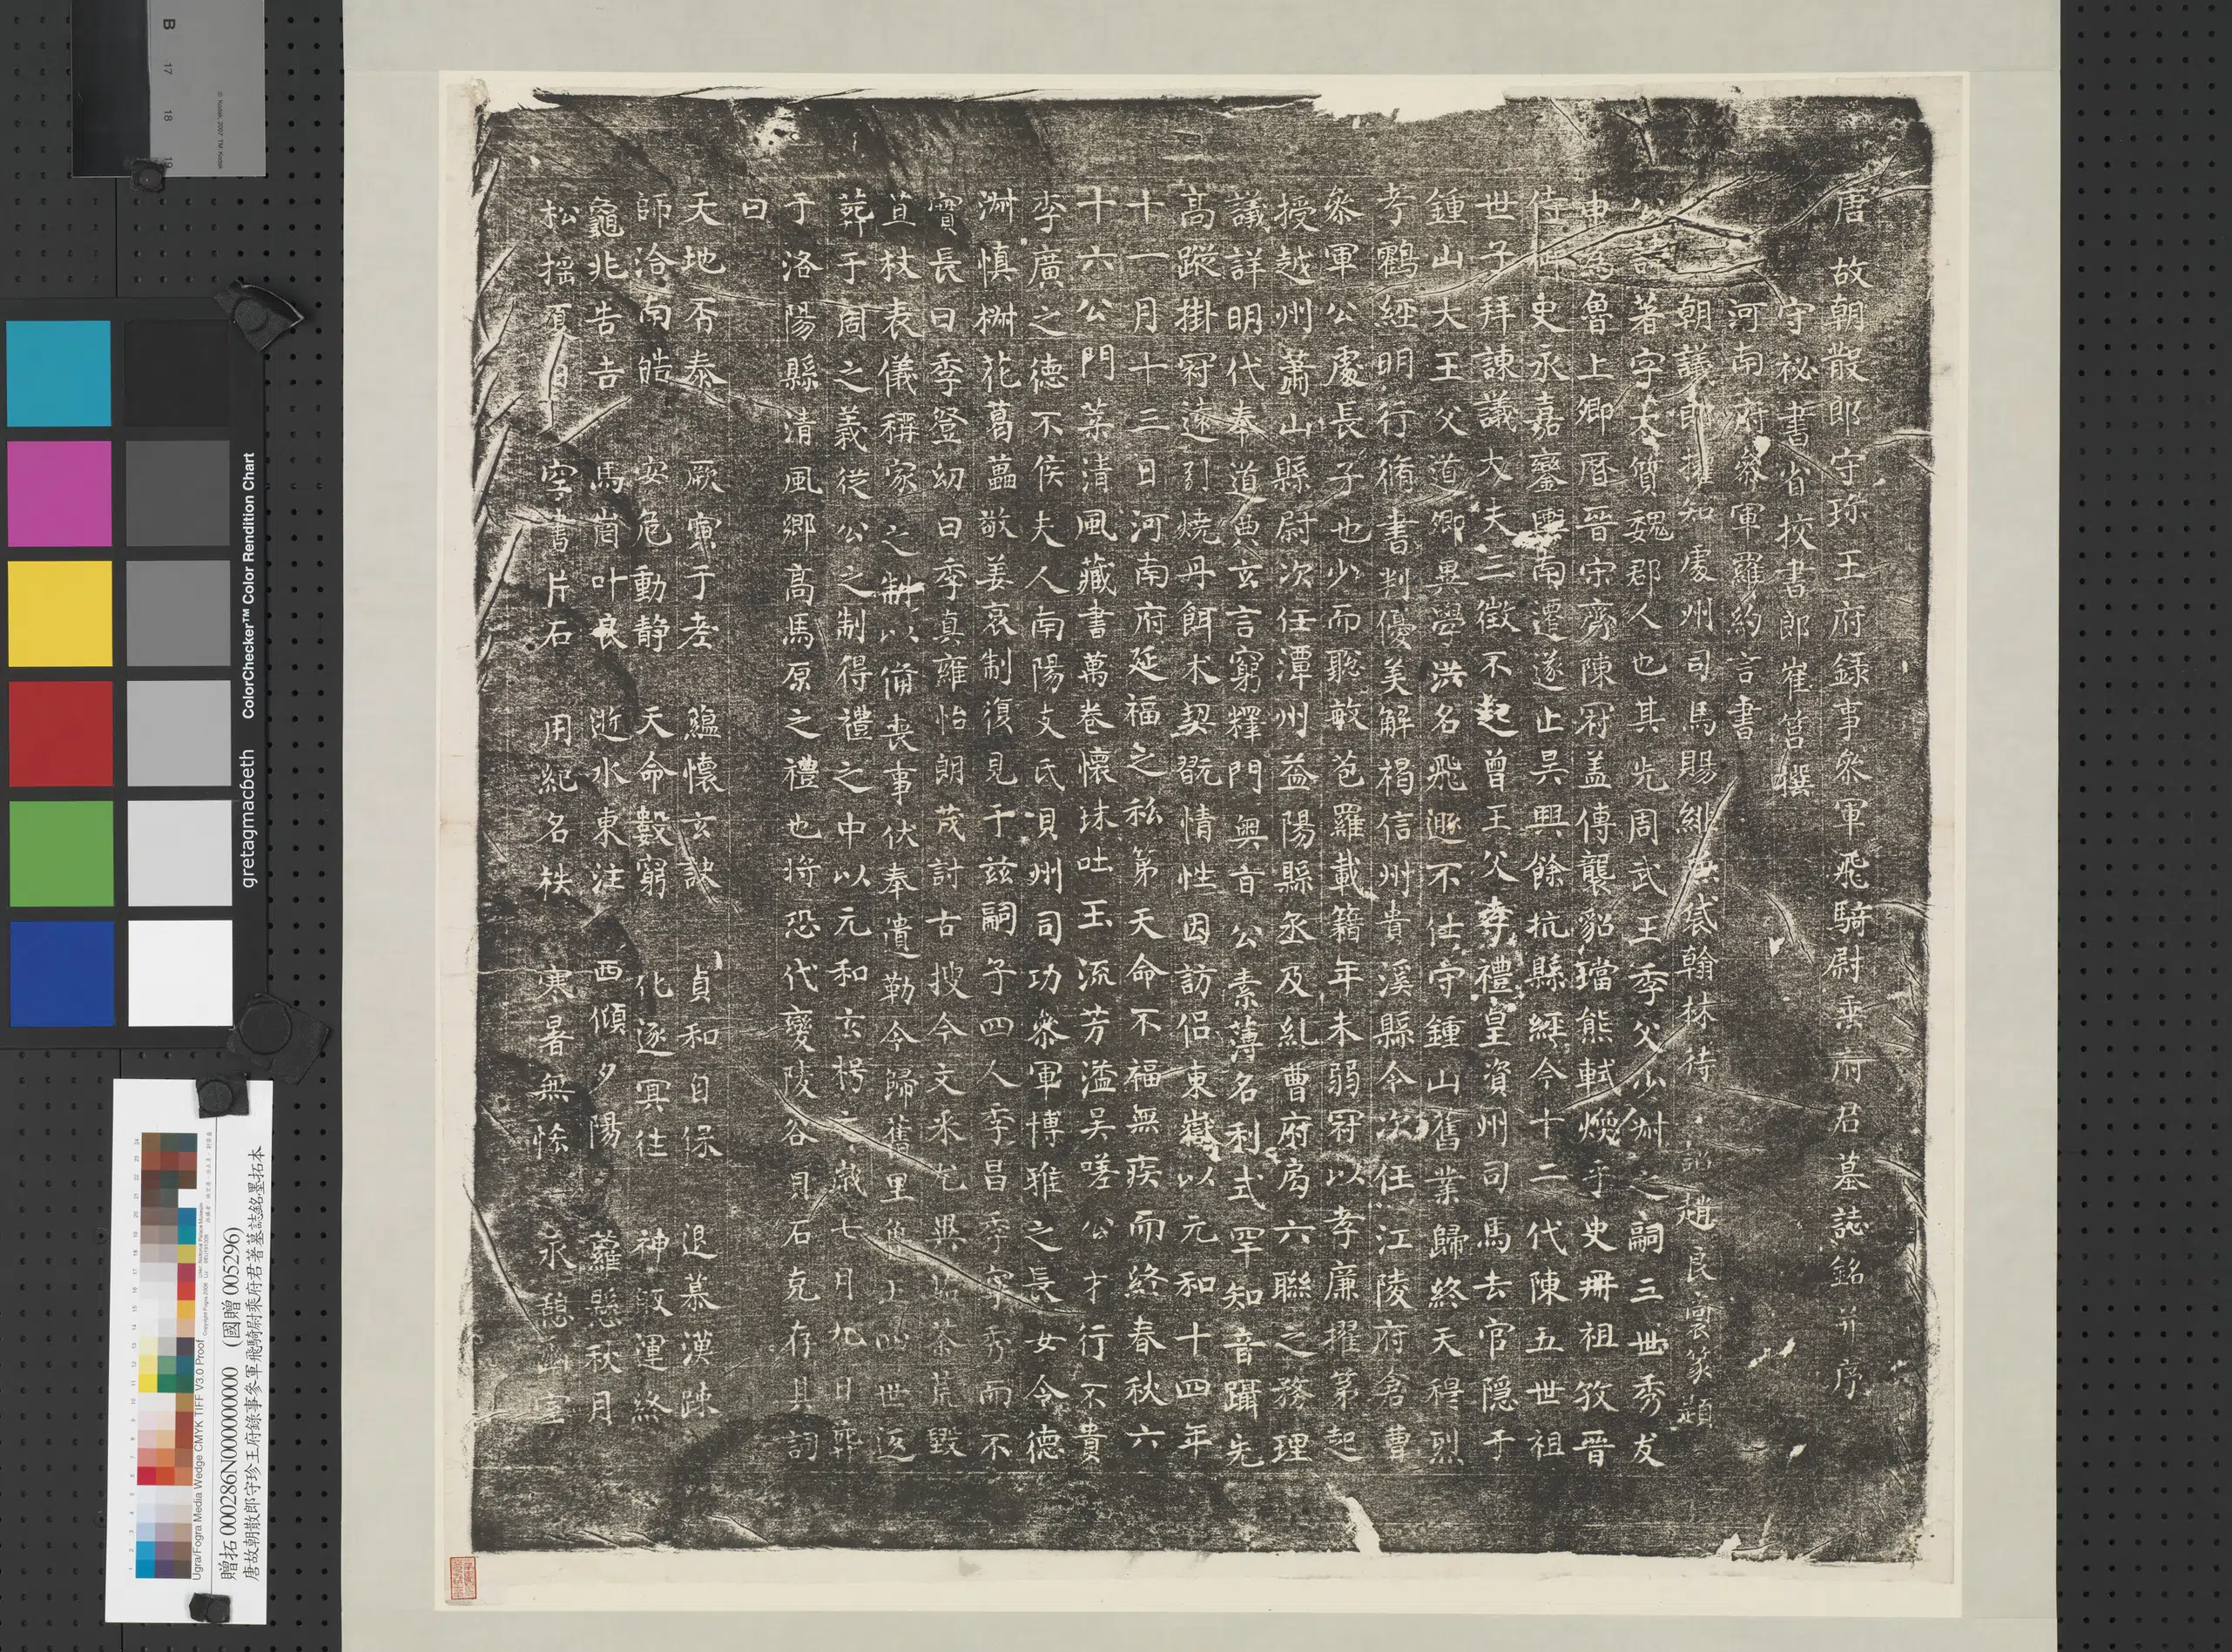 唐故朝散郎守珎王府錄事叅軍飛騎尉乘府君墓誌銘并序
守祕書省校書郎崔筥撰
河南府叅軍羅約言書
朝議郎權知處州司馬賜緋魚袋翰林待詔趙良裔篆題
公諱著字太質魏郡人也其先周武王季父少䊵之嗣三世秀友
史爲魯上卿歷晉宋齊陳冠盖傳襲貂璫熊軾煥乎史冊祖攷晉
侍御史永嘉鑾輿南遷遂止吴興餘杭縣經今十二代陳五世祖
世子拜諫議大夫三徵不起曾王父孝禮皇資州司馬去官隱于
鍾山大王父道卿異學洪名飛遯不仕守鍾山舊業歸終天穆烈
考鸛經明行脩書判優美解褐信州貴溪縣令次任江陵府倉曹
叅軍公處長子也少而聦敏苞羅載籍年未弱冠以孝廉擢第起
授越州蕭山縣尉次任潭州益陽縣丞及乣曹府局六聯之務理
議詳明代奉道典玄言窮釋門奥旨公素薄名利式罕知音躡先
高蹤掛冠遠引燒丹餌术契既情性因訪侣東嶽以元和十四年
十一月十三日河南府延福之私第天命不福無疾而終春秋六
十六公門葉清風藏書萬卷懷珠吐玉流芳溢吴嗟公才行不貴
李廣之德不侯夫人南陽支氏唄州司功叅軍博雅之長女令德
淋慎樹花葛藟敬姜哀制復見于兹嗣子四人季昌季寧秀而不
實長曰季登幼曰季真雍怡朗茂討古披今文釆 毀
苴杖表儀稱家之制以俻喪事伏奉遺勒令歸舊里 世返
葬于周之義從公之制得禮之中以元和玄枵之歲七月九日葬
于洛陽縣清風鄉高馬原之禮也将恐代變陵谷貞石克存其詞
曰
天地否泰 厥寅于老 緼懷玄訣 貞和自保 退慕漢疎
師洽南皓 安危動静 天命數窮 化逐冥往 神役運終
龜兆告吉 馬鬛叶良 逝水東注 西傾夕陽 蘿懸秋月
松摇夏日 字書片石 用紀名秩 寒暑無恡 永憩幽室
贈拓 000286N000000000 (國贈 005296)
唐故朝散郎守珍王府錄事參軍飛騎尉乘府君著墓誌銘墨拓本
Ugra/Fogra Media Wedge CMYK TIFF V3.0 Proof
gretagmacbeth
ColorChecker™ Color Rendition Chart
B 17 18 19
© Kodak, 2007 TM: Kodak